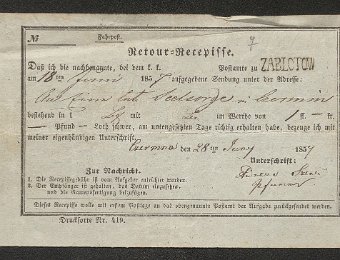 №
Fahrpost.
7
Retour-Recepisse.
Daß ich die nachbenannte, bei dem k. k. Postamte zu ZABŁOTOW
am 18ten Juni 1857 aufgegebene Sendung unter der Adresse:
bestehend in 1 im Werthe von 1 fl. kr.
Pfund Loth schwer, am untengesetzten Tage richtig erhalten habe, bezeuge ich mit
meiner eigenhändigen Unterschrift.
den 28ten Juny 1857
Unterschrift:
Zur Nachricht.
1. Die Recepissegebühr ist vom Aufgeber entrichtet worden.
2. Der Empfänger ist gehalten, das Datum eingesehen
und die Namensfertigung beizufügen.
Dieses Recepisse wolle mit erstem Posttage an das obengenannte Postamt der Aufgabe zurückgesendet werden.
Drucksorte Nr. 419.